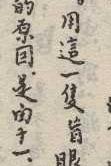 用這一隻盲眼
的原因是由于一